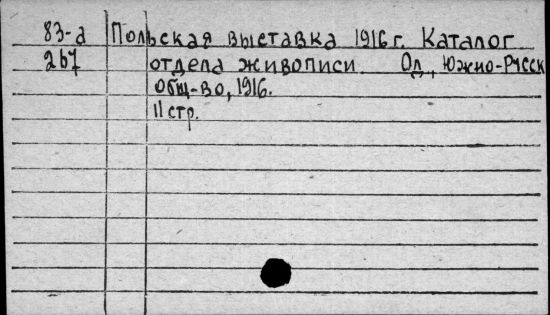 83-а Польская выставка 1916 г. Каталог
267 отдела живописи. Од., Южно-Русск
Общ-во, 1916.
11 стр.